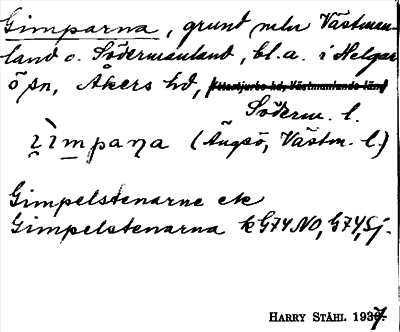 Gimparna, grund mln Västman-
land o. Södermanland, bl. a. i Helgar-
ö sn, Åkers hd, Yttertjurbo hd, Västmanlands län
Söderm. l.
(Ängsö, Västm. l.)
Gimpelstenarne ek
Gimpelstenarna k G74 NO, G74, Sj.
HARRY STÅHL 1937.